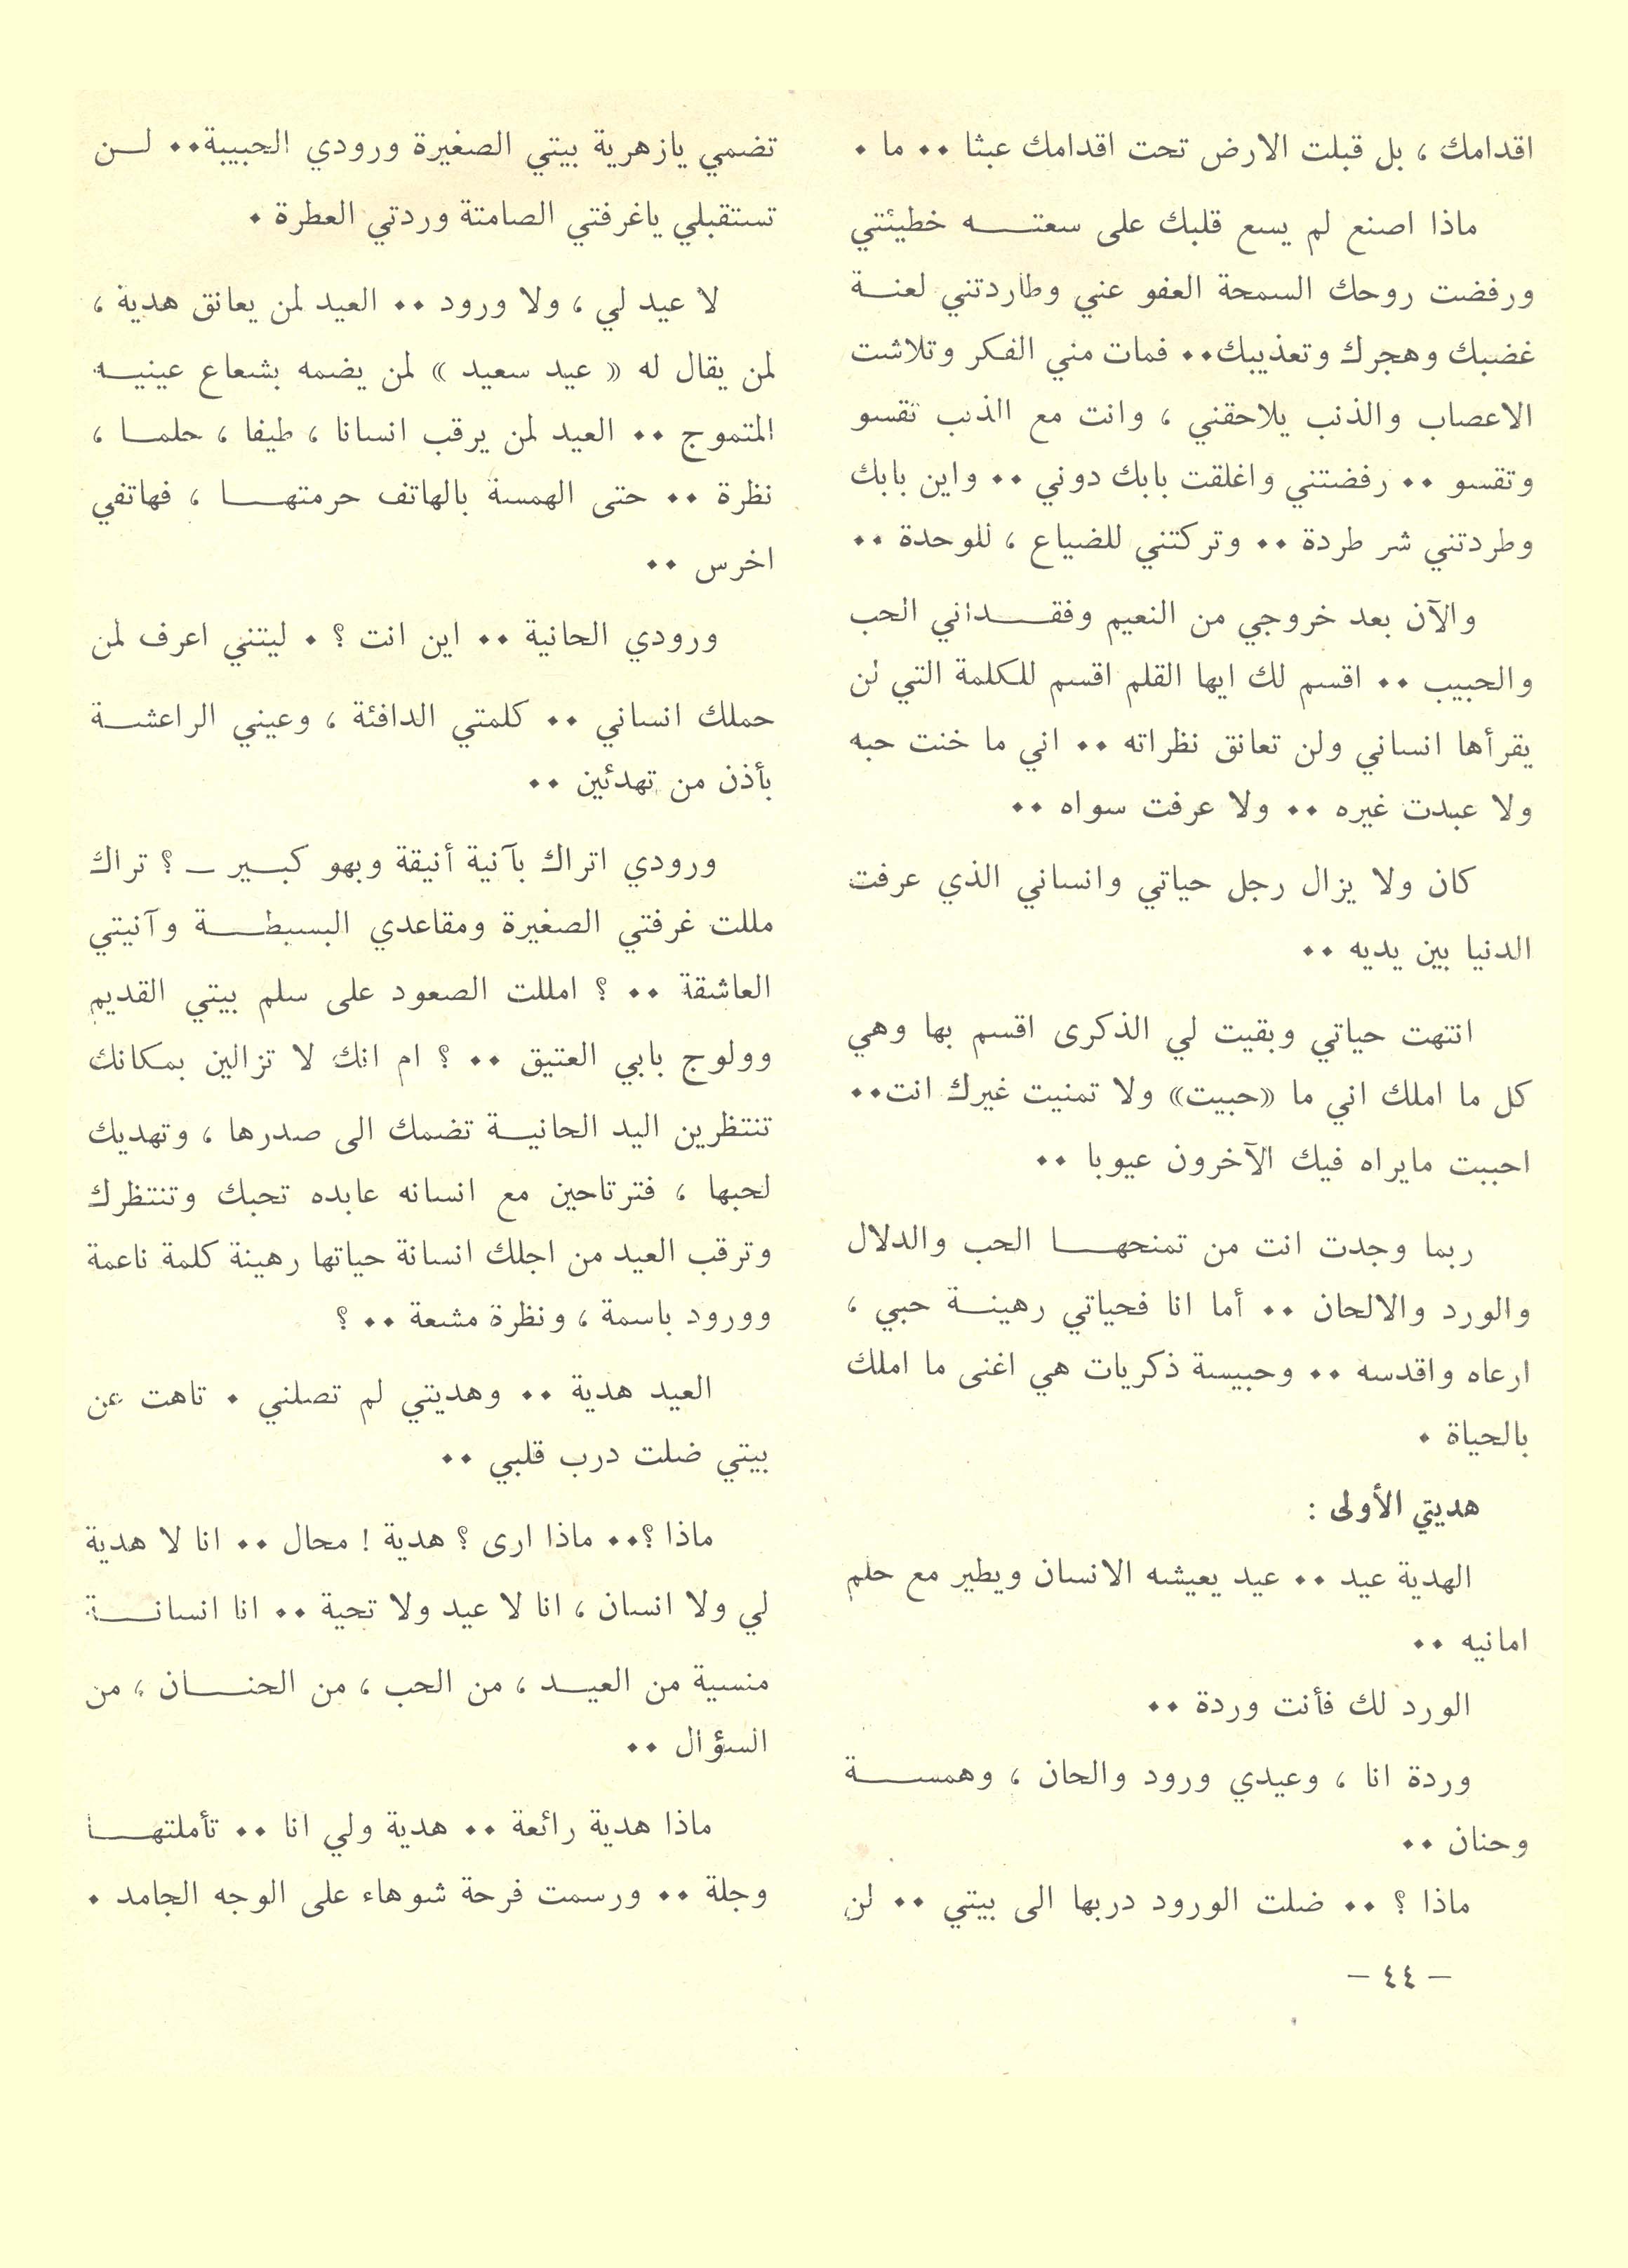 اقدامك ، بل قبلت الارض تحت اقدامك عبثا ٠٠ ما ٠
ماذا اصنع لم يسع قلبك على سعته خطيئتي
ورفضت روحك السمحة العفو عني وطاردتني لعنة
غضبك وهجرك وتعذيبك٠٠ فمات مني الفكر وتلاشت
الاعصاب والذنب يلاحقني ، وانت مع الذنب تقسو
وتقسو ٠٠ رفضتني واغلقت بابك دوني ٠٠ واين بابك
وطردتني شر طردة ٠٠ وتركتني للضياع ، للوحدة ٠٠
والآن بعد خروجي من النعيم وفقداني الحب
والحبيب ٠٠ اقسم لك ايها القلم اقسم للكلمة التي لن
يقرأها انساني ولن تعانق نظراته ٠٠ اني ما خنت حبه
ولا عبدت غيره ٠٠ ولا عرفت سواه ٠٠
كان ولا يزال رجل حياتي وانساني الذي عرفت
الدنيا بين يديه ٠٠
انتهت حياتي وبقيت لي الذكرى اقسم بها وهي
كل ما املك اني ما «حبيت» ولا تمنيت غيرك انت٠٠
احببت مايراه فيك الآخرون عيوبا ٠٠
ربما وجدت انت من تمنحها الحب والدلال
والورد والالحان ٠٠ أما انا فحياتي رهينة حبي ،
ارعاه واقدسه ٠٠ وحبيسة ذكريات هي اغنى ما املك
بالحياة ٠
هديتي الأولى :
الهدية عيد ٠٠ عيد يعيشه الانسان ويطير مع حلم
امانيه ٠٠
الورد لك فأنت وردة ٠٠
وردة انا ، وعيدي ورود والحان ، وهمسة
وحنان ٠٠
ماذا ؟ ٠٠ ضلت الورود دربها الى بيتي ٠٠ لن
تضمي يازهرية بيتي الصغيرة ورودي الحبيبة٠٠ لن
تستقبلي ياغرفتي الصامتة وردتي العطرة ٠
لا عيد لي ، ولا ورود ٠٠ العيد لمن يعانق هدية ،
لمن يقال له « عيد سعيد » لمن يضمه بشعاع عينيه
المتموج ٠٠ العيد لمن يرقب انسانا ، طيفا ، حلما ،
نظرة ٠٠ حتى الهمسة بالهاتف حرمتها ، فهاتفي
اخرس ٠٠
ورودي الحانية ٠٠ اين انت ؟ ٠ ليتني اعرف لمن
حملك انساني ٠٠ كلمتي الدافئة ، وعيني الراعشة
بأذن من تهدئين ٠٠
ورودي اتراك بآنية أنيقة وبهو كبير ـ ؟ تراك
مللت غرفتي الصغيرة ومقاعدي البسيطة وآنيتي
العاشقة ٠٠ ؟ امللت الصعود على سلم بيتي القديم
وولوج بابي العتيق ٠٠ ؟ ام انك لا تزالين بمكانك
تنتظرين اليد الحانية تضمك الى صدرها ، وتهديك
لحبها ، فترتاحين مع انسانه عابده تحبك وتنتظرك
وترقب العيد من اجلك انسانة حياتها رهينة كلمة ناعمة
وورود باسمة ، ونظرة مشعة ٠٠ ؟
العيد هدية ٠٠ وهديتي لم تصلني ٠ تاهت عن
بيتي ضلت درب قلبي ٠٠
ماذا ؟٠٠ ماذا ارى ؟ هدية ! محال ٠٠ انا لا هدية
لي ولا انسان ، انا لا عيد ولا تحية ٠٠ انا انسانة
منسية من العيد ، من الحب ، من الحنان ، من
السؤال ٠٠
ماذا هدية رائعة ٠٠ هدية ولي انا ٠٠ تأملتها
وجلة ٠٠ ورسمت فرحة شوهاء على الوجه الجامد ٠
— ٤٤ —